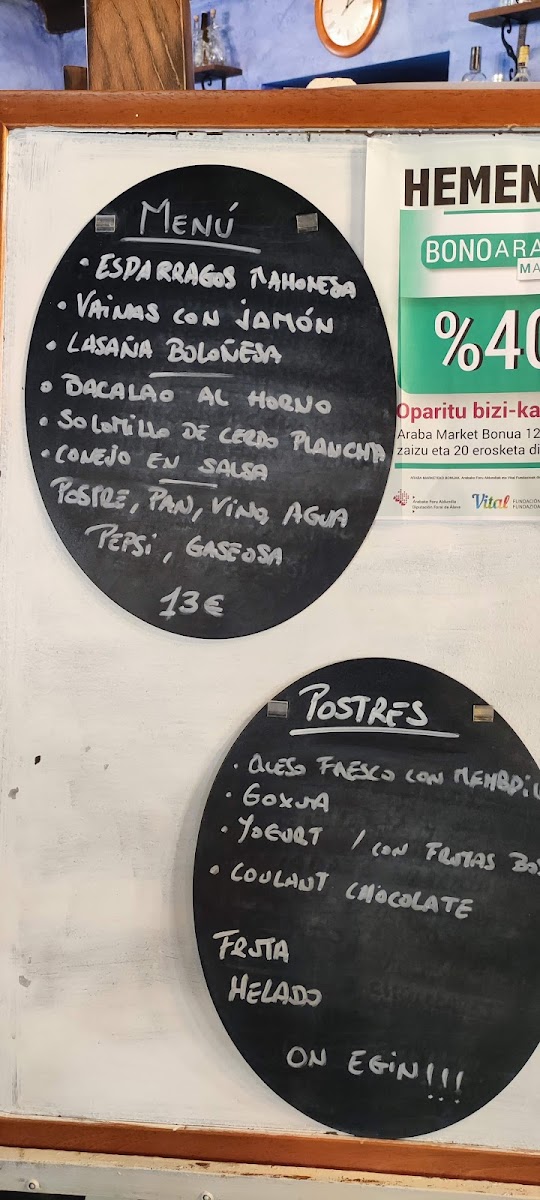 MENÚ
• ESPARRAGOS MAHONESA
• VAINAS CON JAMÓN
• LASAÑA BOLOÑESA
• BACALAO AL HORNO
• SOLOMILLO DE CERDO PLANCHA
• CONEJO EN SALSA
POSTRE, PAN, VINO, AGUA
PEPSI, GASEOSA
13€
HEMEN
BONOARA
MA
%40
Oparitu bizi-ka
Araba Market Bonua 12
zaizu eta 20 erosketa di
Arabako Foru Aldundia
Diputación Foral de Álava
Vital
FUNDACIÓN
FUNDAZIOA
POSTRES
• QUESO FRESCO CON MEMBRIL
• GOXUA
• YOGURT / CON FRUTAS BOS
• COULANT CHOCOLATE
FRUTA
HELADO
ON EGIN!!!